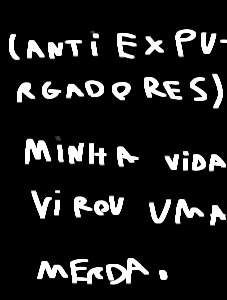 (ANTi EXPU-
RGADORES)
MiNHA ViDA
Vi ROU UMA
MERDA.